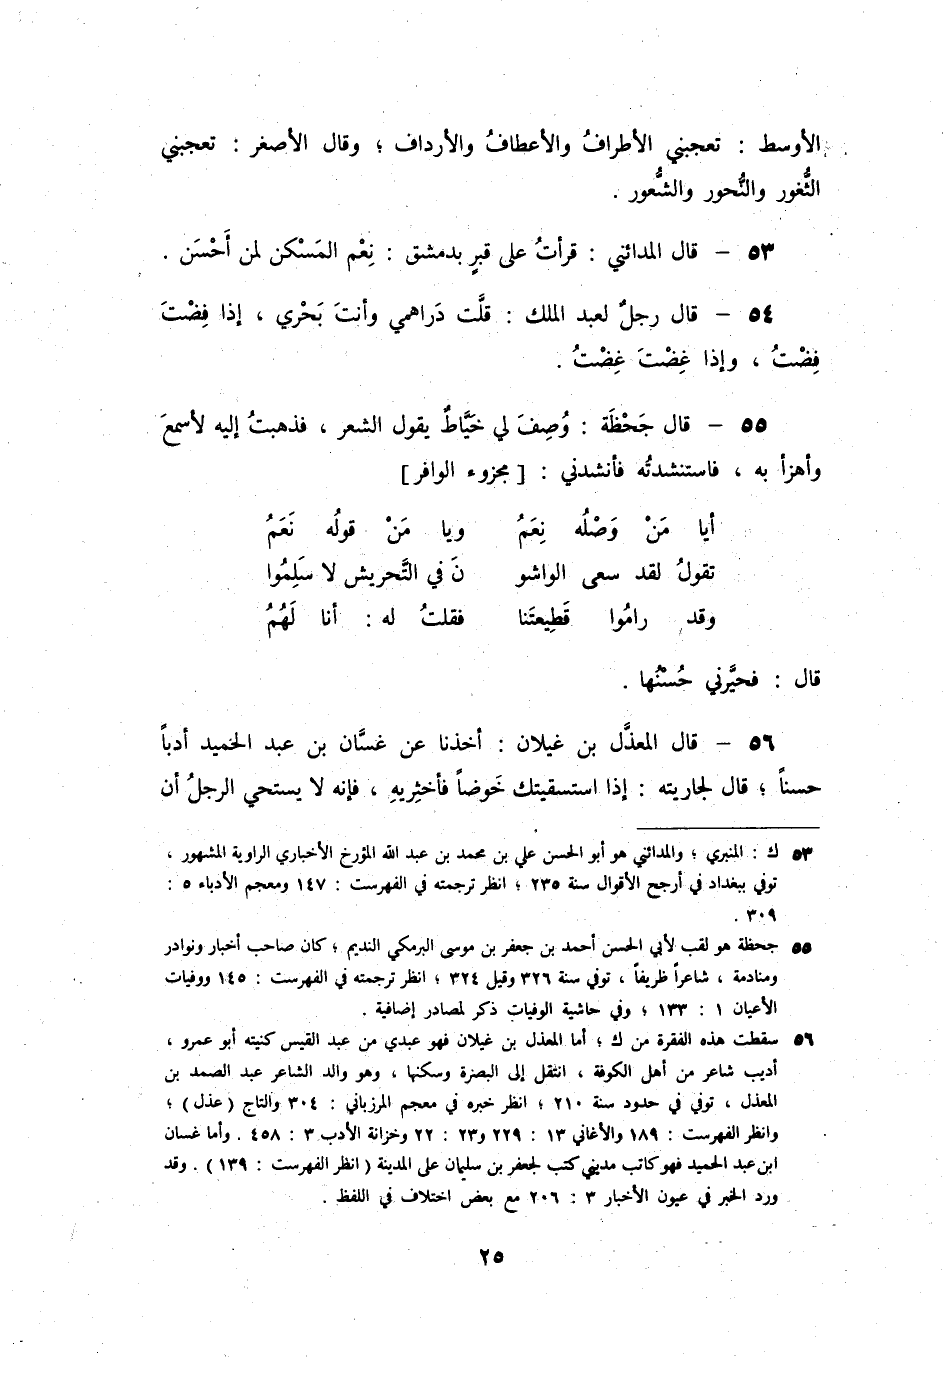 الأوسط : تعجبني الأطرافُ والأعطافُ والأرداف ؛ وقال الأصغر : تعجبني
الثُّغور والنُّحور والشُّعور .
٥٣ – قال المدائني : قرأتُ على قبرٍ بدمشق : نِعْم المَسْكن لمن أَحْسَن .
٥٤ – قال رجلٌ لعبد الملك : قلَّت دَراهمي وأنتَ بَحْري ، إذا فِضْتَ
فِضْتُ ، وإذا غِضْتَ غِضْتُ .
٥٥ – قال جَحْظَة : وُصِفَ لي خيَّاطٌ يقول الشعر ، فذهبتُ إليه لأسمعَ
وأهزأ به ، فاستنشدتُه فأنشدني : [ مجزوء الوافر ]
أيا مَنْ وَصْلُه نِعَمُ ويا مَنْ قولُه نَعَمُ
تقولُ لقد سعى الواشو نَ في التَّحريش لا سَلِمُوا
وقد رامُوا قَطِيعتَنا فقلتُ له : أنا لَهُمُ
قال : فحيَّرني حُسْنُها .
٥٦ – قال المعذَّل بن غيلان : أخذنا عن غسَّان بن عبد الحميد أدباً
حسناً ؛ قال لجاريته : إذا استسقيتك خَوضاً فأخثِريهِ ، فإنه لا يستحي الرجلُ أن
٥٣ ك : المنبري ؛ والمدائني هو أبو الحسن علي بن محمد بن عبد الله المؤرخ الأخباري الراوية المشهور ،
توفي ببغداد في أرجح الأقوال سنة ٢٣٥ ؛ انظر ترجمته في الفهرست : ١٤٧ ومعجم الأدباء ٥ :
٣٠٩ .
٥٥ جحظة هو لقب لأبي الحسن أحمد بن جعفر بن موسى البرمكي النديم ؛ كان صاحب أخبار ونوادر
ومنادمة ، شاعراً ظريفاً ، توفي سنة ٣٢٦ وقيل ٣٢٤ ؛ انظر ترجمته في الفهرست : ١٤٥ ووفيات
الأعيان ١ : ١٣٣ ؛ وفي حاشية الوفيات ذكر لمصادر إضافية .
٥٦ سقطت هذه الفقرة من ك ؛ أما المعذل بن غيلان فهو عبدي من عبد القيس كنيته أبو عمرو ،
أديب شاعر من أهل الكوفة ، انتقل إلى البصرة وسكنها ، وهو والد الشاعر عبد الصمد بن
المعذل ، توفي في حدود سنة ٢١٠ ؛ انظر خبره في معجم المرزباني : ٣٠٤ والتاج ( عذل ) ؛
وانظر الفهرست : ١٨٩ والأغاني ١٣ : ٢٢٩ و٢٣ : ٢٢ وخزانة الأدب ٣ : ٤٥٨ . وأما غسان
ابن عبد الحميد فهو كاتب مديني كتب لجعفر بن سليمان على المدينة ( انظر الفهرست : ١٣٩ ) . وقد
ورد الخبر في عيون الأخبار ٣ : ٢٠٦ مع بعض اختلاف في اللفظ .
٢٥